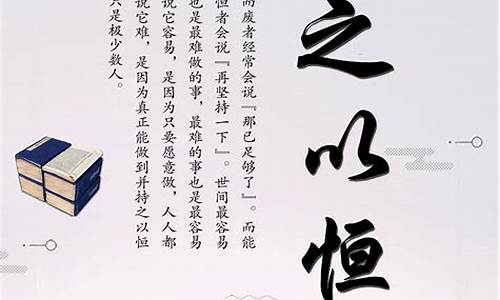 之以恒
而废者经常会说『那已足够了』。而能
恒者会说『再坚持一下』。世间最容易
也是最难做的事，最难的事也是最容易
说它容易，是因为只要愿意做，人人都
说它难，是因为真正能做到并持之以恒
只是极少数人。